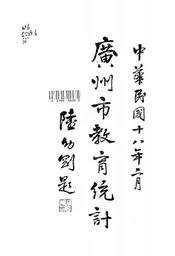 中華民國十八年二月
廣州市教育統計
陸幼剛題